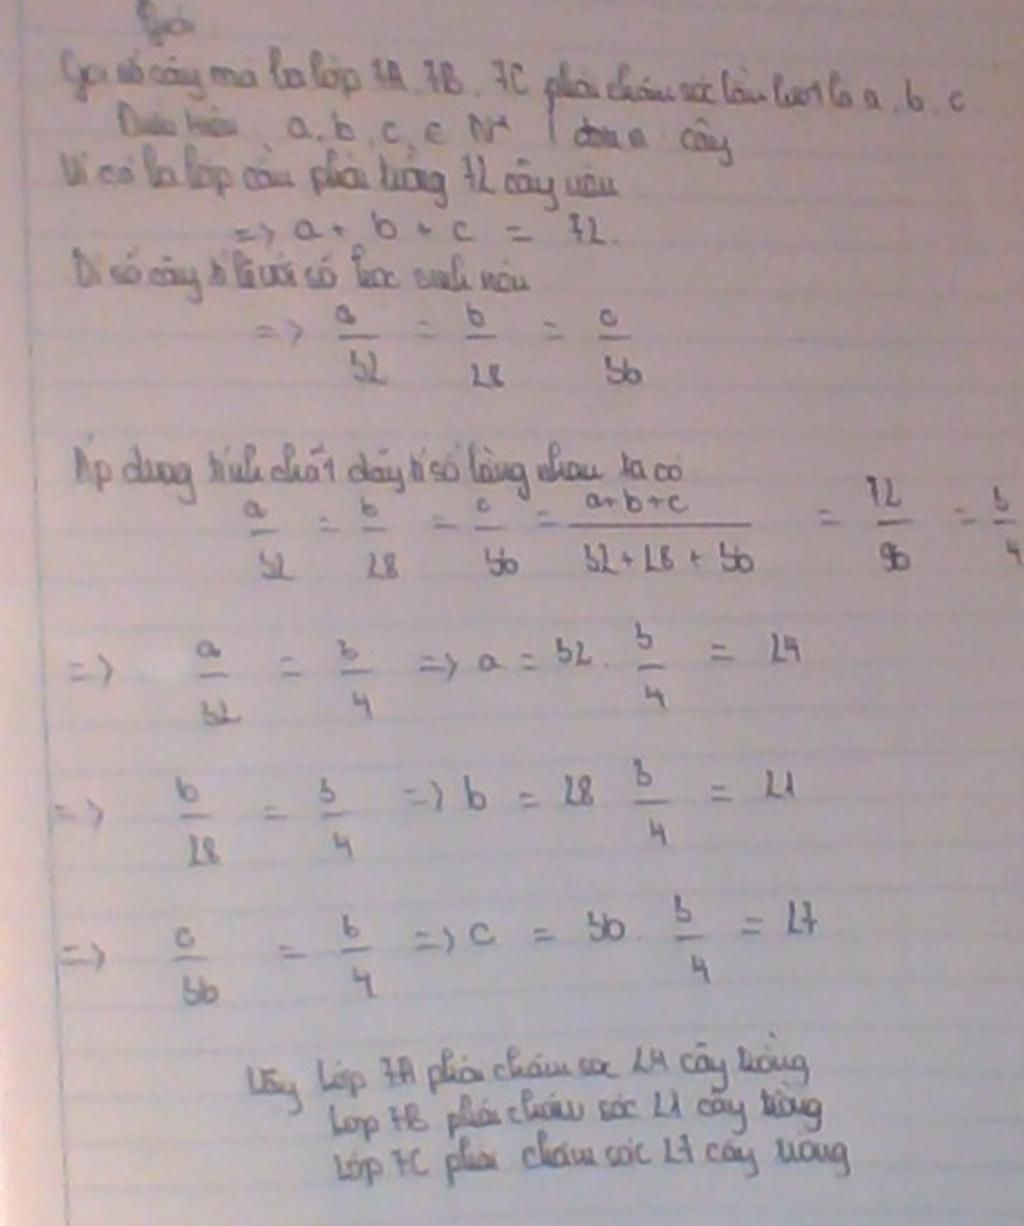 Giải
Gọi số cây mà ba lớp 7A, 7B, 7C phải chăm sóc lần lượt là a, b, c
Điều kiện a, b, c, ∈ N* | đơn vị cây
Vì cả ba lớp cần phải trồng 72 cây nên
=> a + b + c = 72.
Vì số cây tỉ lệ với số học sinh nên
=> a/32 = b/28 = c/36
Áp dụng tính chất dãy tỉ số bằng nhau ta có
a/32 = b/28 = c/36 = a+b+c/32+28+36 = 72/96 = 3/4
=> a/32 = 3/4 => a = 32. 3/4 = 24
=> b/28 = 3/4 => b = 28 3/4 = 21
=> c/36 = 3/4 => c = 36. 3/4 = 27
Vậy Lớp 7A phải chăm sóc 24 cây trồng
Lớp 7B phải chăm sóc 21 cây trồng
Lớp 7C phải chăm sóc 27 cây trồng